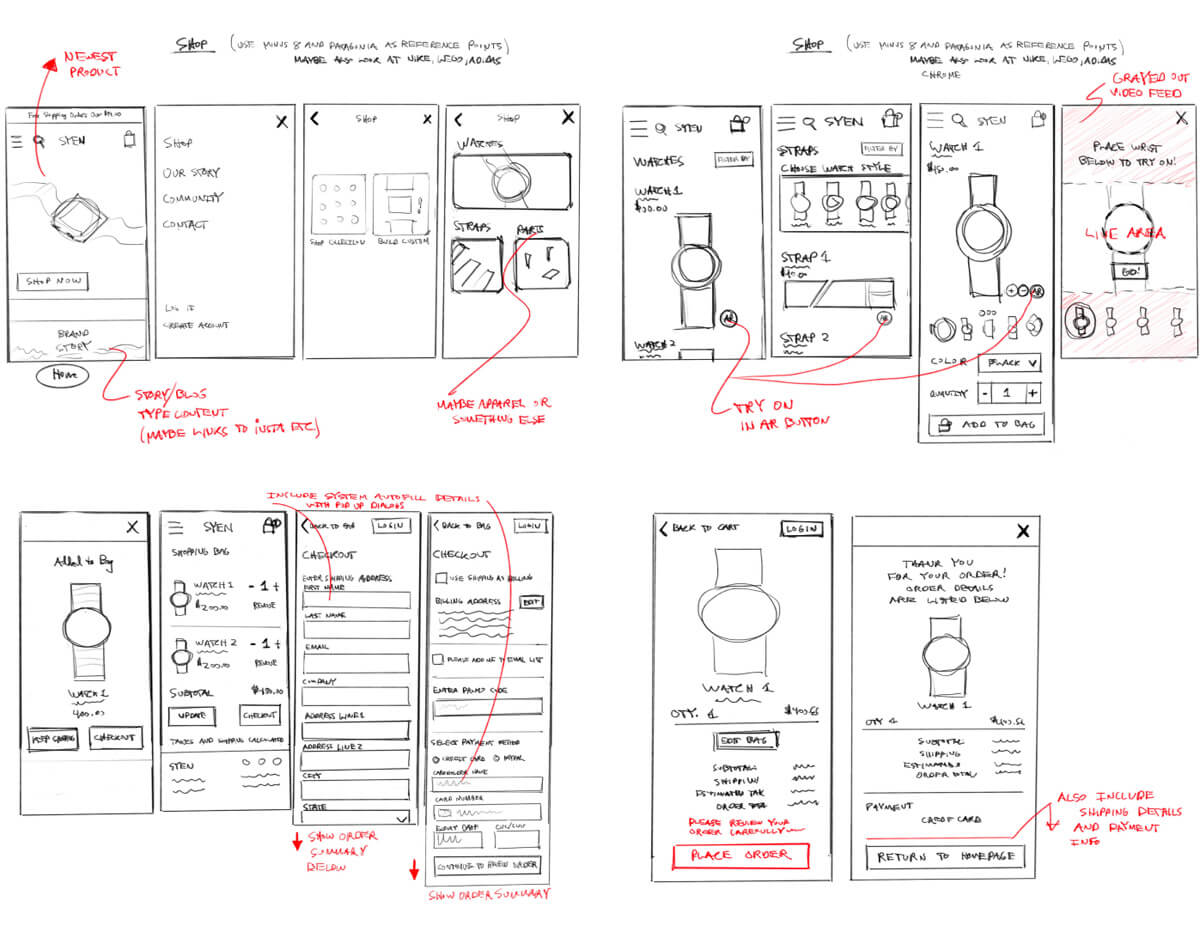 SHOP (USE MINUS 8 AND PATAGONIA AS REFERENCE POINTS)
MAYBE ALSO LOOK AT NIKE, LEGO, ADIDAS
NEWEST
PRODUCT
SYEN
SHOP NOW
BRAND
STORY
HOME
STORY/BLOG
TYPE CONTENT
(MAYBE LINKS TO INSTA ETC)
X
SHOP
OUR STORY
COMMUNITY
CONTACT
LOG IN
CREATE ACCOUNT
< SHOP X
SHOP COLLECTION
BUILD CUSTOM
< SHOP X
WATCHES
STRAPS
PARTS
MAYBE APPAREL OR
SOMETHING ELSE
SHOP (USE MINUS 8 AND PATAGONIA AS REFERENCE POINTS)
MAYBE ALSO LOOK AT NIKE, LEGO, ADIDAS
CHROME
SYEN
WATCHES
FILTER BY
WATCH 1
AR
WATCH 2
SYEN
STRAPS
FILTER BY
CHOOSE WATCH STYLE
STRAP 1
AR
STRAP 2
TRY ON
IN AR BUTTON
SYEN
WATCH 1
+ - AR
COLOR BLACK
QUANTITY - 1 +
ADD TO BAG
GRAYED OUT
VIDEO FEED
X
PLACE WRIST
BELOW TO TRY ON!
LIVE AREA
GO!
INCLUDE SYSTEM AUTOFILL DETAILS
WITH POP UP DIALOGS
X
Added to Bag
WATCH 1
400.00
CHECKOUT
SYEN
SHOPPING BAG
WATCH 1 - 1 +
$200.00 REMOVE
WATCH 2 - 1 +
$200.00 REMOVE
SUBTOTAL
UPDATE CHECKOUT
TAXES AND SHIPPING CALCULATED
SYEN
< BACK TO BAG LOGIN
CHECKOUT
ENTER SHIPPING ADDRESS
FIRST NAME
LAST NAME
EMAIL
COMPANY
ADDRESS LINE 1
ADDRESS LINE 2
CITY
STATE
SHOW ORDER
SUMMARY
BELOW
< BACK TO BAG LOGIN
CHECKOUT
USE SHIPPING AS BILLING
BILLING ADDRESS EDIT
PLEASE ADD ME TO EMAIL LIST
ENTER PROMO CODE
SELECT PAYMENT METHOD
CREDIT CARD PAYPAL
CARDHOLDER NAME
CARD NUMBER
EXPIRY DATE
CONTINUE TO REVIEW ORDER
SHOW ORDER SUMMARY
< BACK TO CART LOGIN
WATCH 1
QTY. 1
EDIT BAG
SUBTOTAL
SHIPPING
ESTIMATED TAX
ORDER TOTAL
PLEASE REVIEW YOUR
ORDER CAREFULLY
PLACE ORDER
X
THANK YOU
FOR YOUR ORDER!
ORDER DETAILS
ARE LISTED BELOW
WATCH 1
SUBTOTAL
SHIPPING
ESTIMATED
ORDER TOTAL
PAYMENT
CREDIT CARD
RETURN TO HOMEPAGE
ALSO INCLUDE
SHIPPING DETAILS
AND PAYMENT
INFO